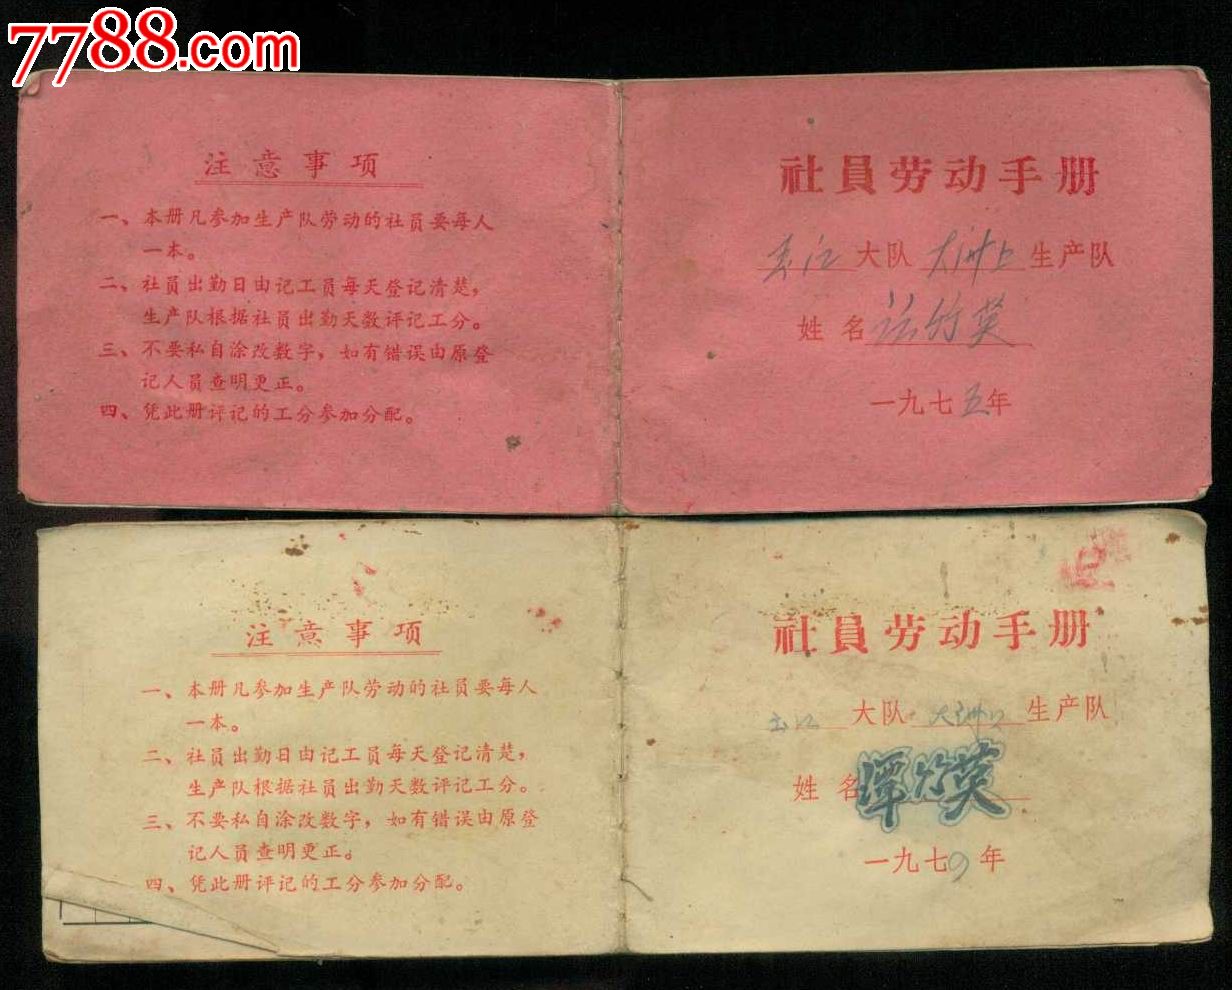 7788.com
注意事项
一、本册凡参加生产队劳动的社员要每人
一本。
二、社员出勤日由记工员每天登记清楚，
生产队根据社员出勤天数评记工分。
三、不要私自涂改数字，如有错误由原登
记人员查明更正。
四、凭此册评记的工分参加分配。
社員劳动手册
江大队 大洲上生产队
姓名 竹英
一九七五年
注意事项
一、本册凡参加生产队劳动的社员要每人
一本。
二、社员出勤日由记工员每天登记清楚，
生产队根据社员出勤天数评记工分。
三、不要私自涂改数字，如有错误由原登
记人员查明更正。
四、凭此册评记的工分参加分配。
社員劳动手册
大队 生产队
姓名 竹英
一九七0年